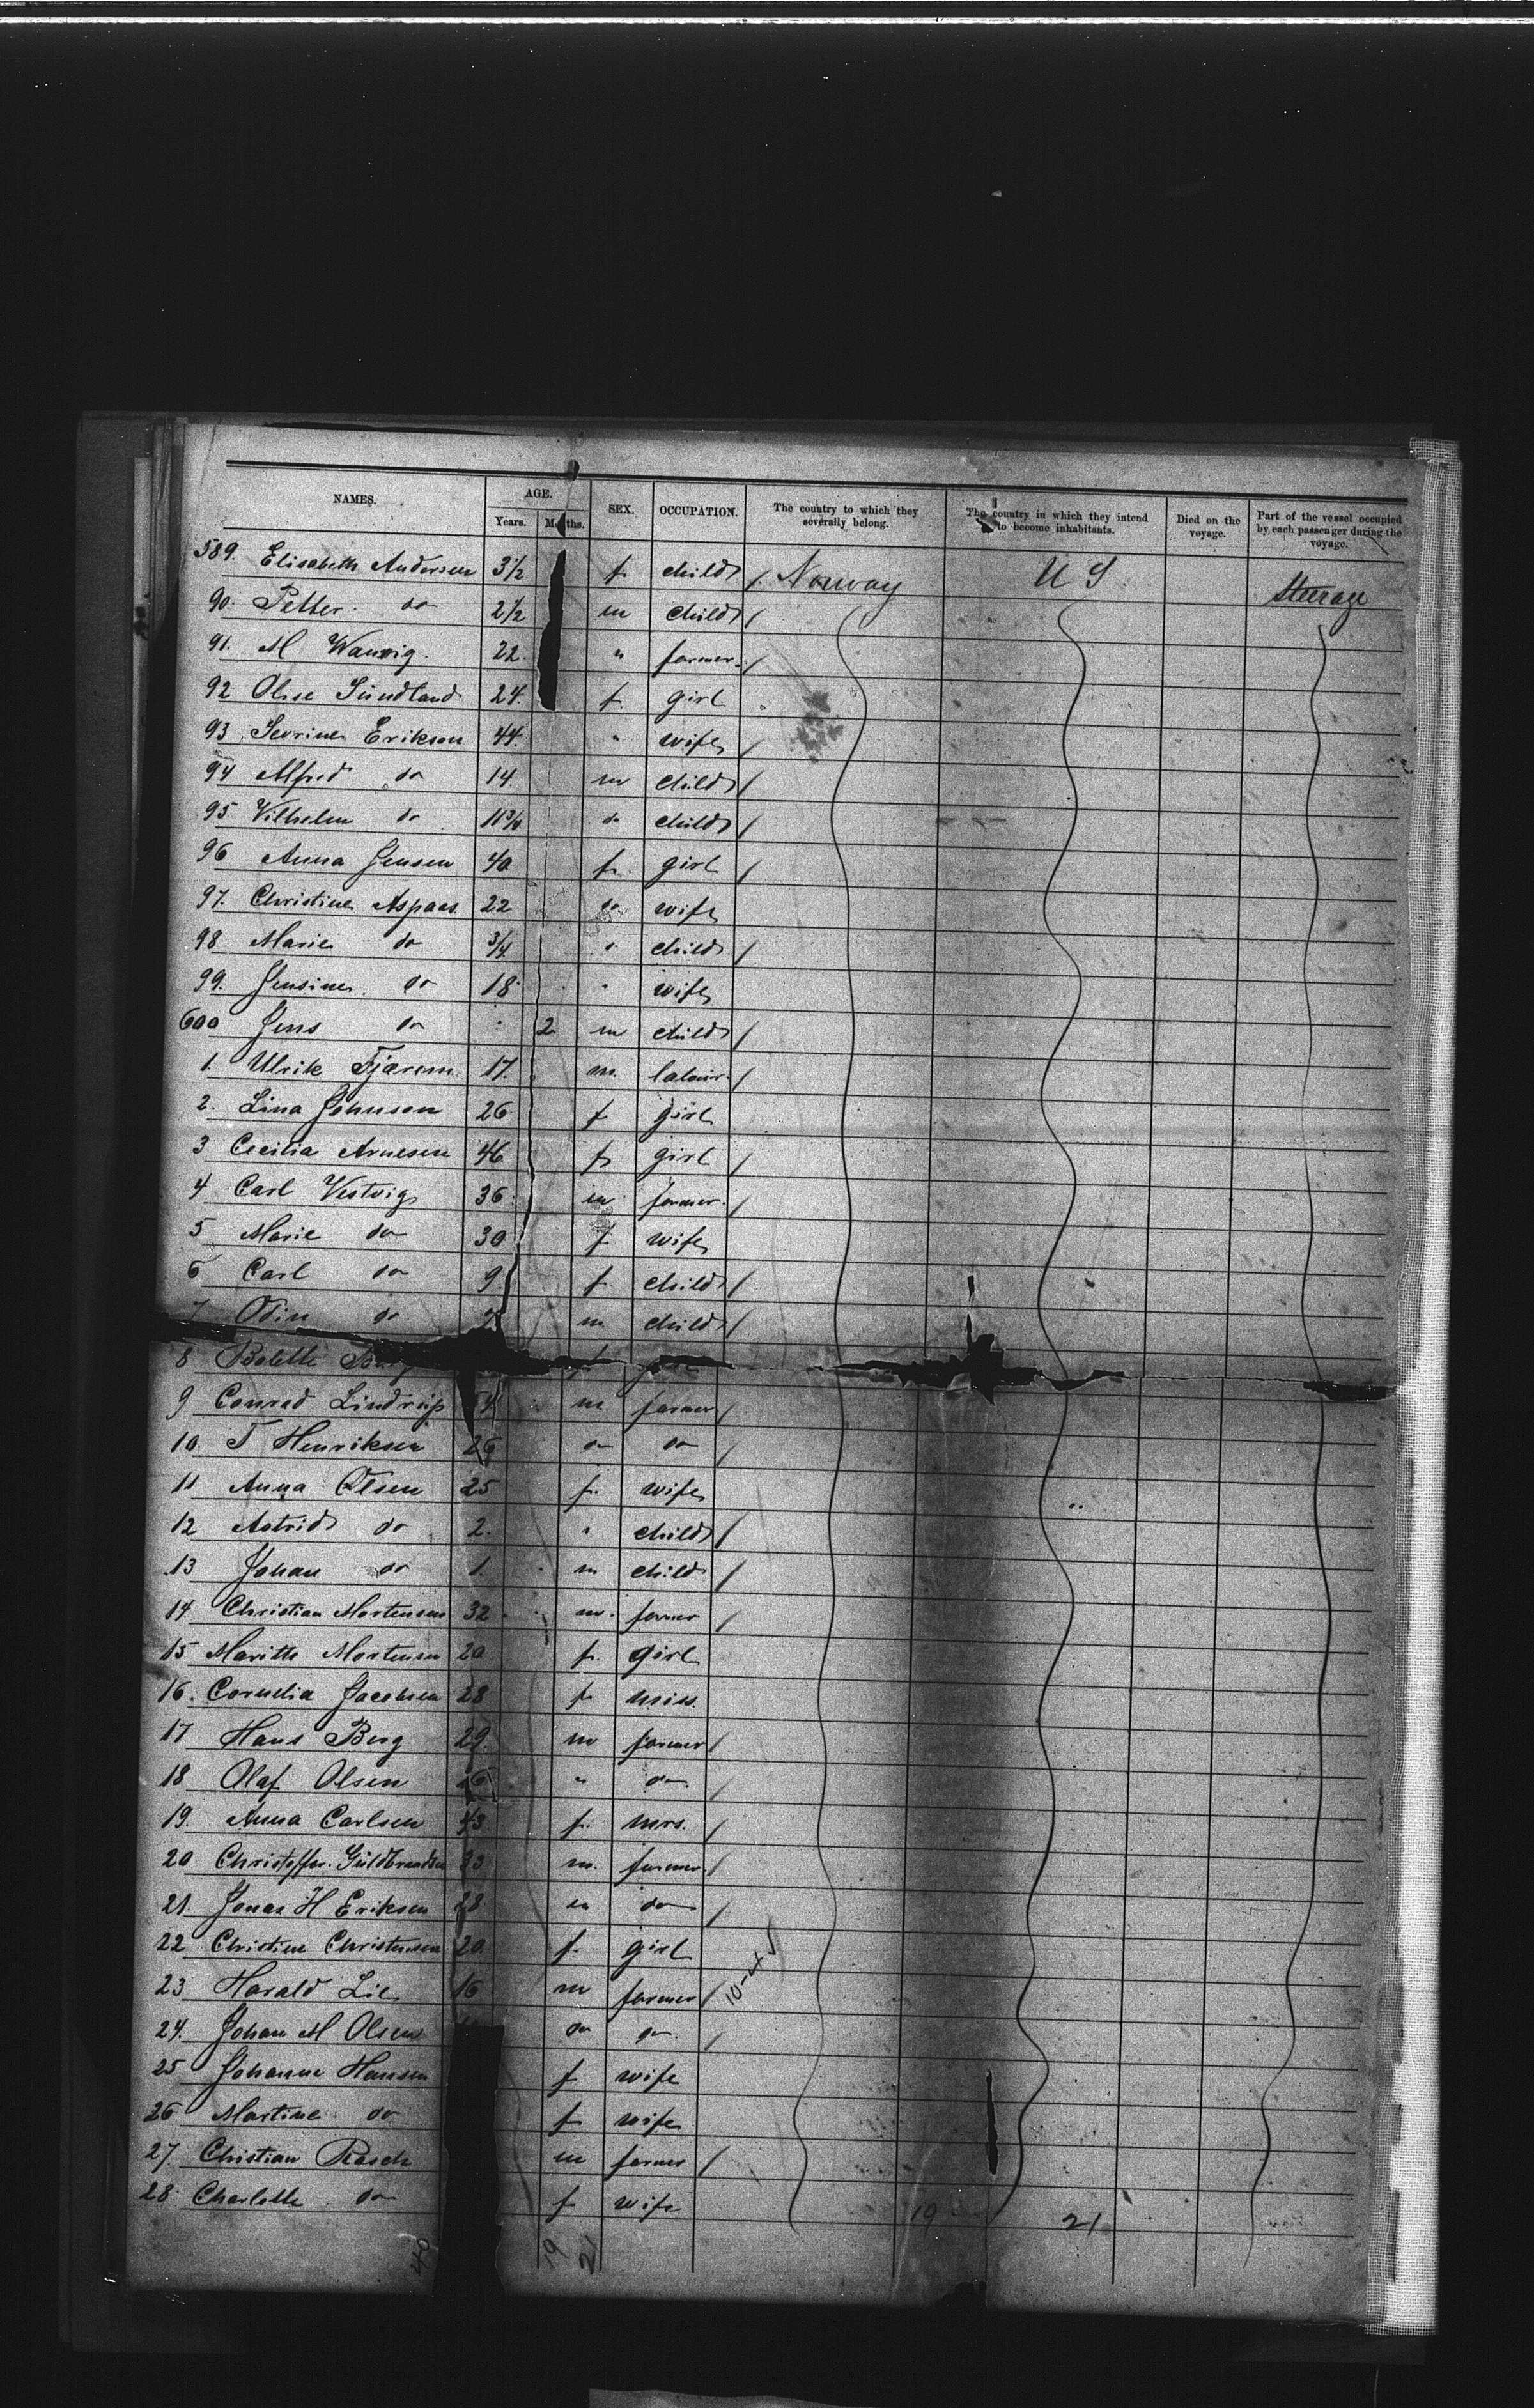 NAMES. AGE. SEX. OCCUPATION. The country to which they severally belong. The country in which they intend to become inhabitants. Died on the voyage. Part of the vessel occupied by each passenger during the voyage.
Years. Months.
589. Elisabeth Andersen 3 1/2 f. child / Norway U S Steerage
90. Petter do 2 1/2 m child /
91. M 22 " farmer. /
92 Olise Sündland 24. f. girl
93 Sevrine Erikson 44. " wife /
94 Alfred do 14. m child /
95 Vilhelm do 11 do child /
96 Anna Jensen 40 f. girl /
97. Christine Aspaas 22 do wife
98 Marie do 3/4 " child /
99. Jensine do 18 " wife
600 Jens do 2 m child /
1. Ulrik 17. m. /
2. Lina Johnson 26 f girl
3 Cecilia Arnesen 46 f girl /
4 Carl Vestvig 36. m farmer. /
5 Marie do 30 f. wife
6 Carl do 9. f child /
7 Odin do m child /
8 Bolette
9 Conrad Lindrup m farmer /
10. T Henriksen 26 do do /
11 Anna Olsen 25 f. wife
12 Astrid do 2. " child /
13 Johan do 1. m child /
14 Christian Mortensen 32 m. farmer /
15 Maritte Mortensen 20 f. girl
16. Cornelia Jacobsen 28 f miss.
17 Hans Berg 29. m farmer /
18 Olaf Olsen " do /
19. Anna Carlsen 43 f. mrs. /
20. Christoffer Güldbrandsen m. farmer. /
21. Jonas H Eriksen 28 m do /
22 Christine Christensen 20. f. girl
23 Harald Lie 16 m farmer /
24. Johan M Olsen do do. /
25 Johanne Hansen f wife
26 Martine do f wife
27. Christian Rasch m farmer /
28 Charlotte do f wife
19 21
40 19 21